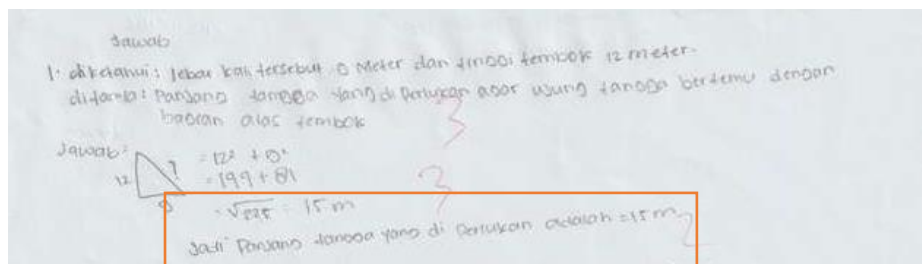 Jawab
1. diketahui: lebar kali tersebut 9 Meter dan tinggi tembok 12 meter.
ditanya: Panjang tangga yang di Perlukan agar ujung tangga bertemu dengan
bagian atas tembok
Jawab:
12 ? 9
= 12² + 9²
= 144 + 81
= √225 = 15 m
Jadi Panjang tangga yang di Perlukan adalah = 15 m.
3
3
2